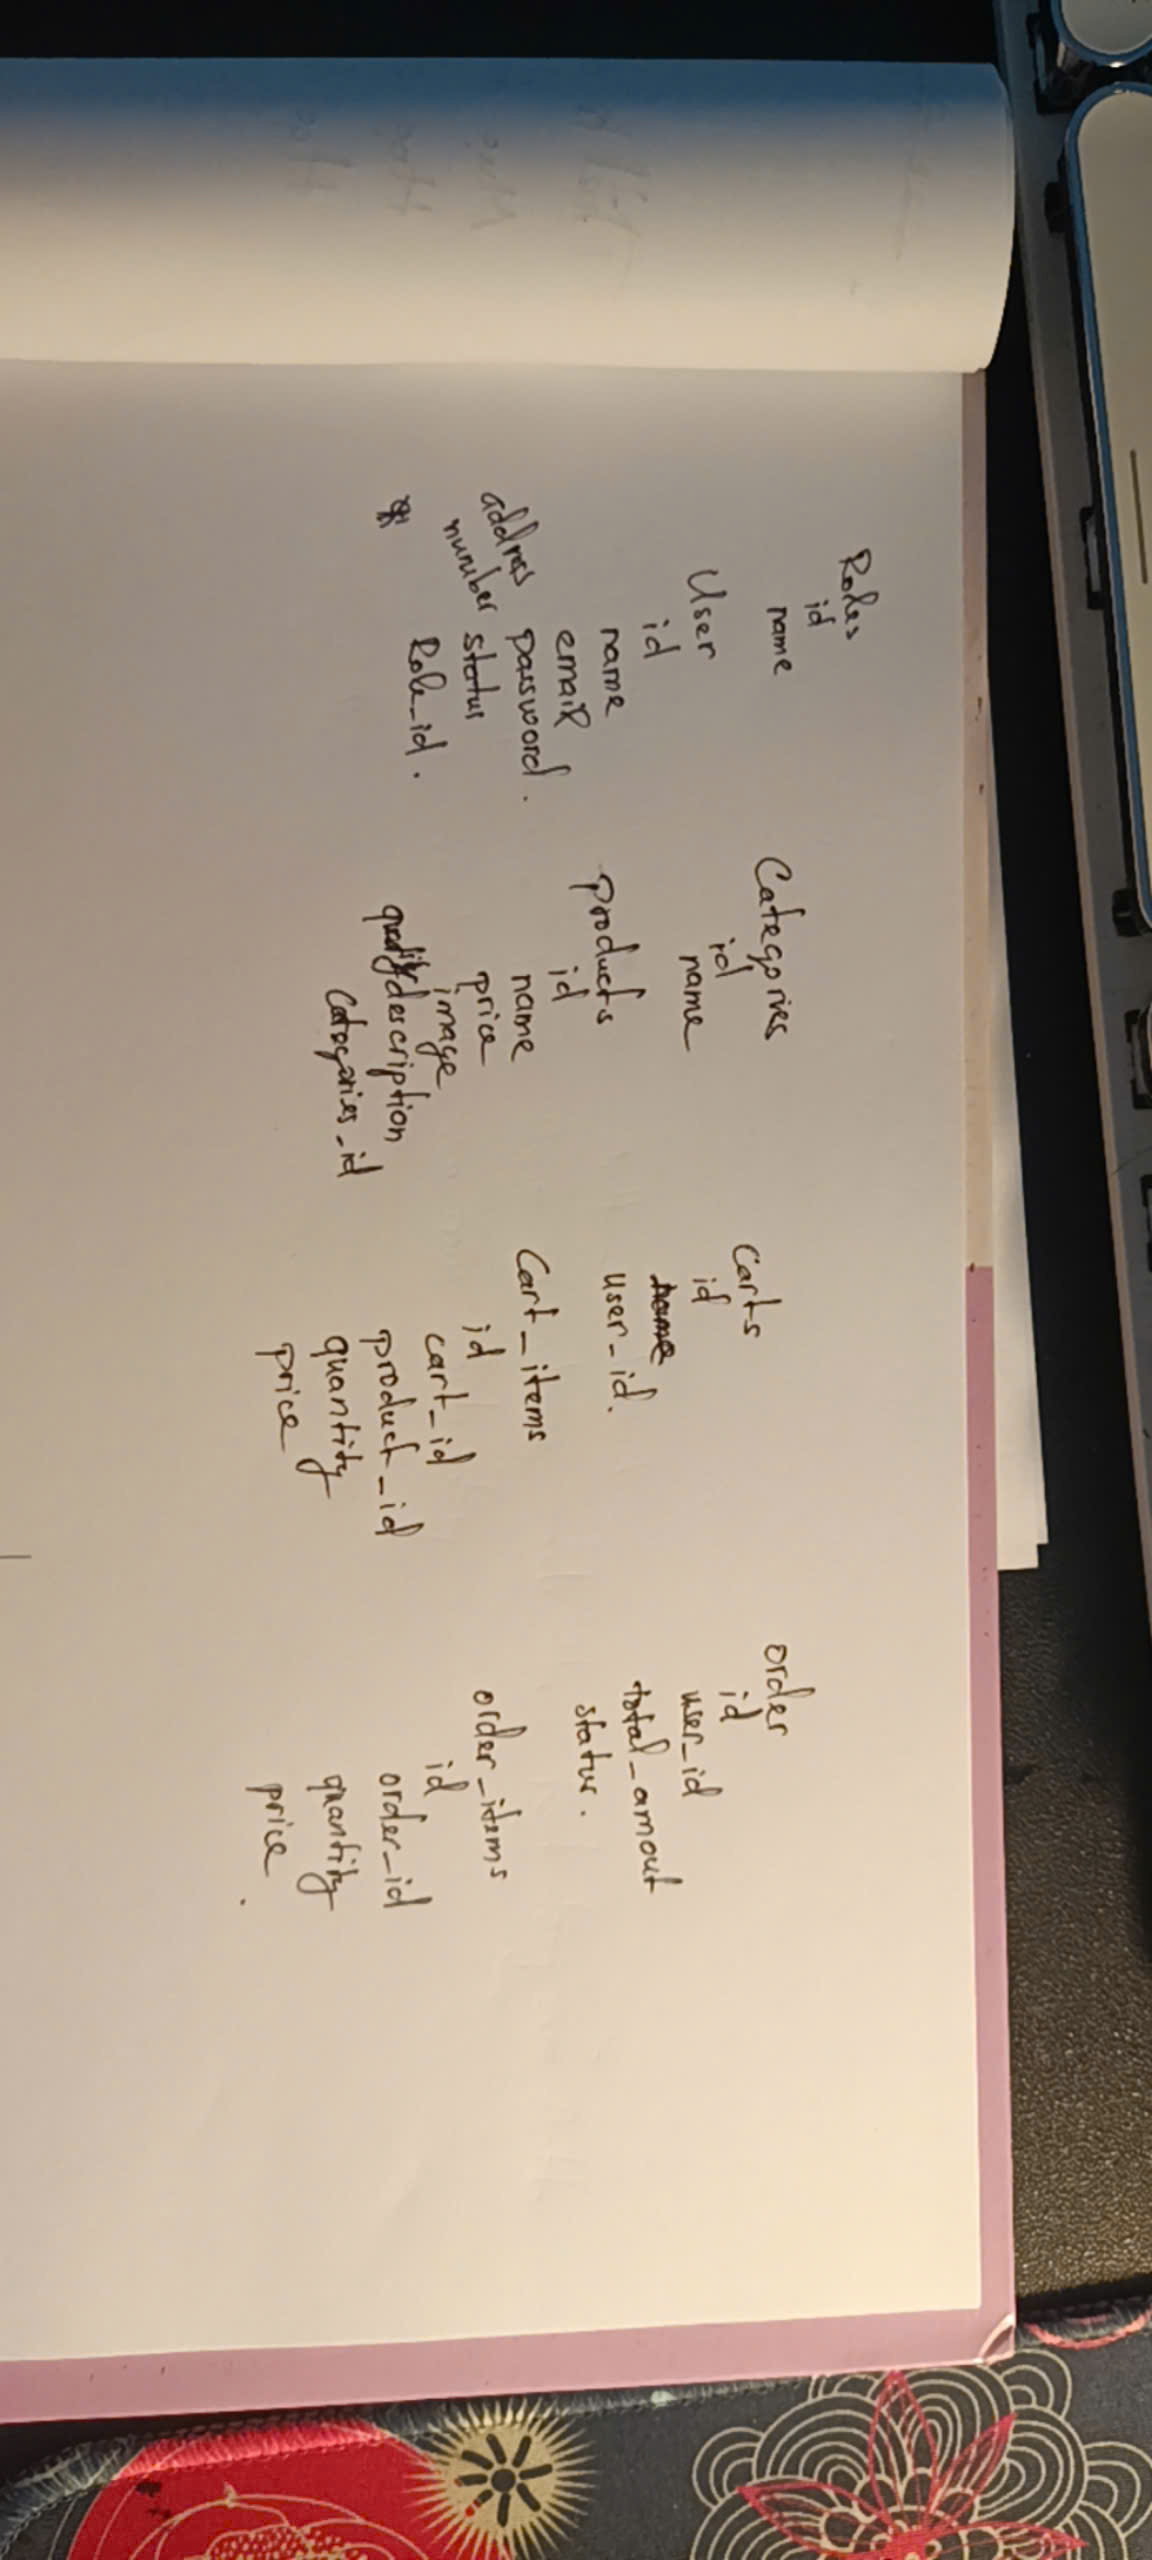 Roles
id
name
User
id
name
email
address password.
number status
Role_id.
Categories
id
name
products
id
name
price
image
description
Categories_id
Carts
id
user_id.
Cart_items
id
cart_id
product_id
quantity
price
order
id
user_id
total_amout
status.
order_items
id
order_id
quantity
price